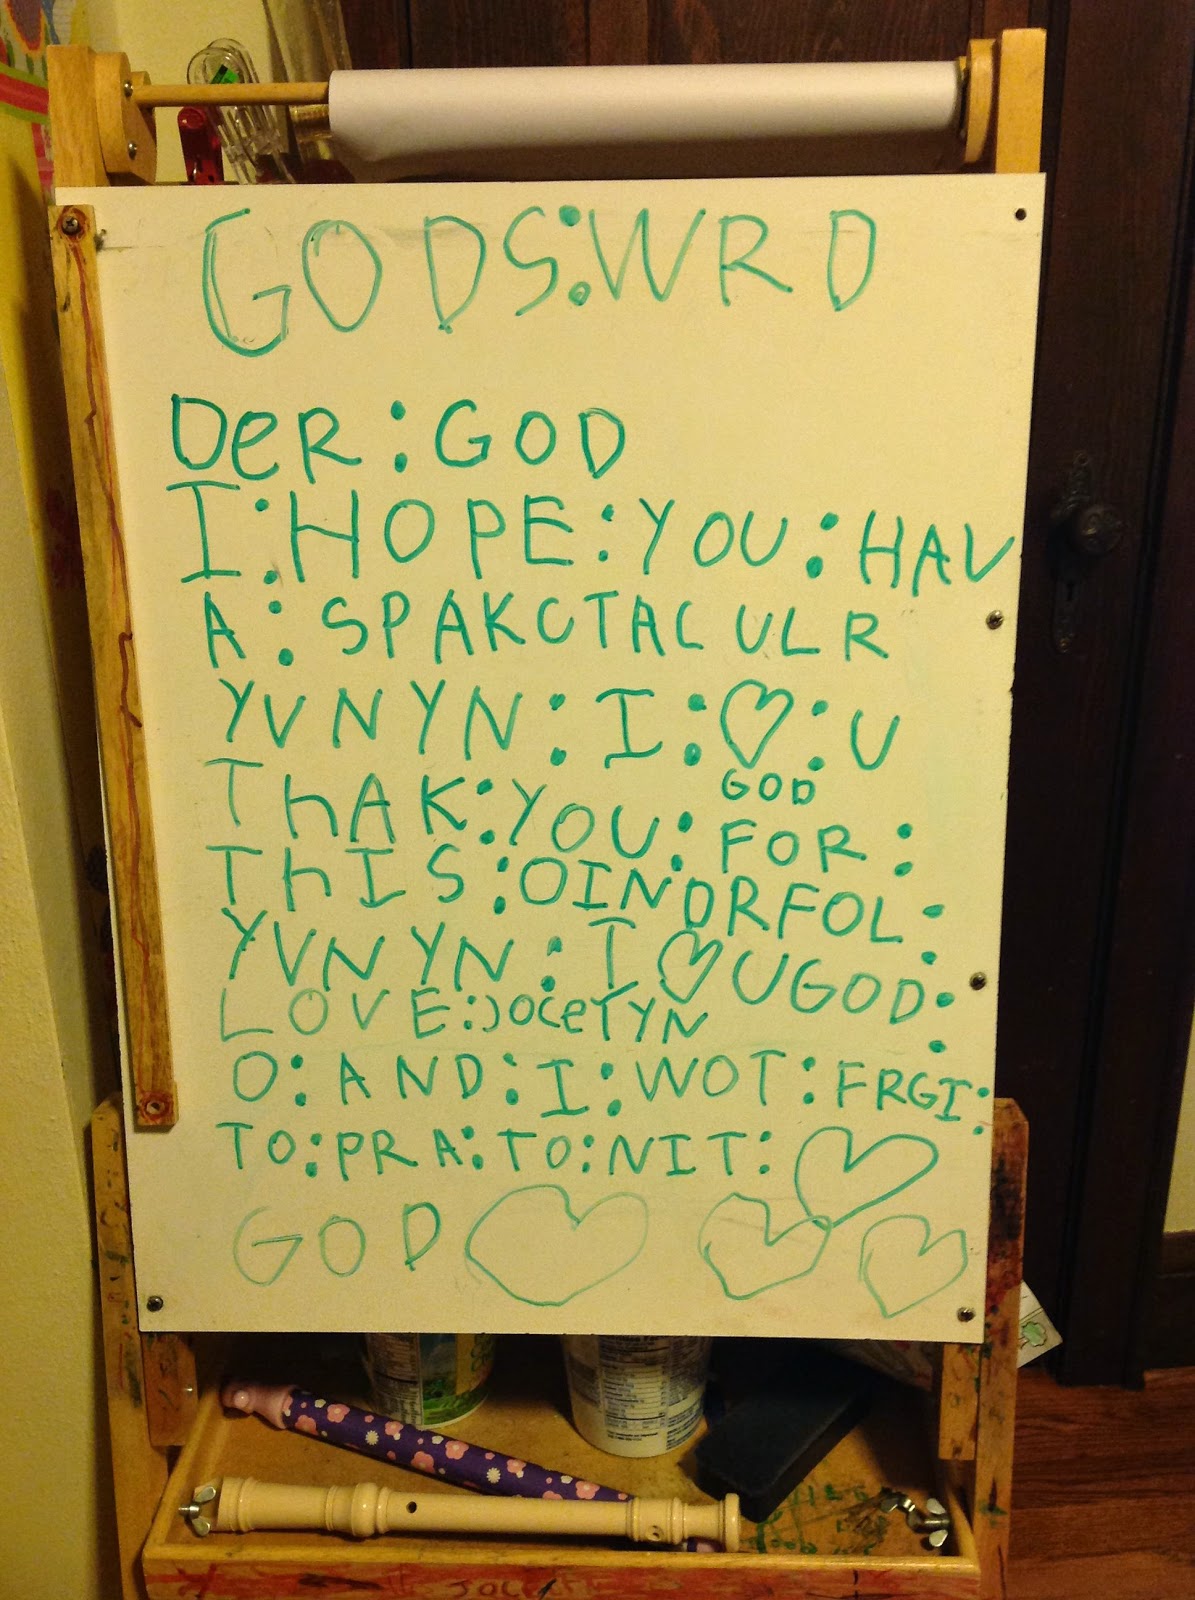 GODS:WRD
DeR:GOD
I:HOPE:YOU:HAV
A:SPAKCTACULR
YVNYN:I:♡:U
ThAK:YOU:GOD FOR:
ThIS:OINDRFOL:
YVNYN:I♡UGOD:
LOVE:JOCelYN
O:AND:I:WOT:FRGI:
TO:PRA:TO:NIT:♡
GOD♡♡♡